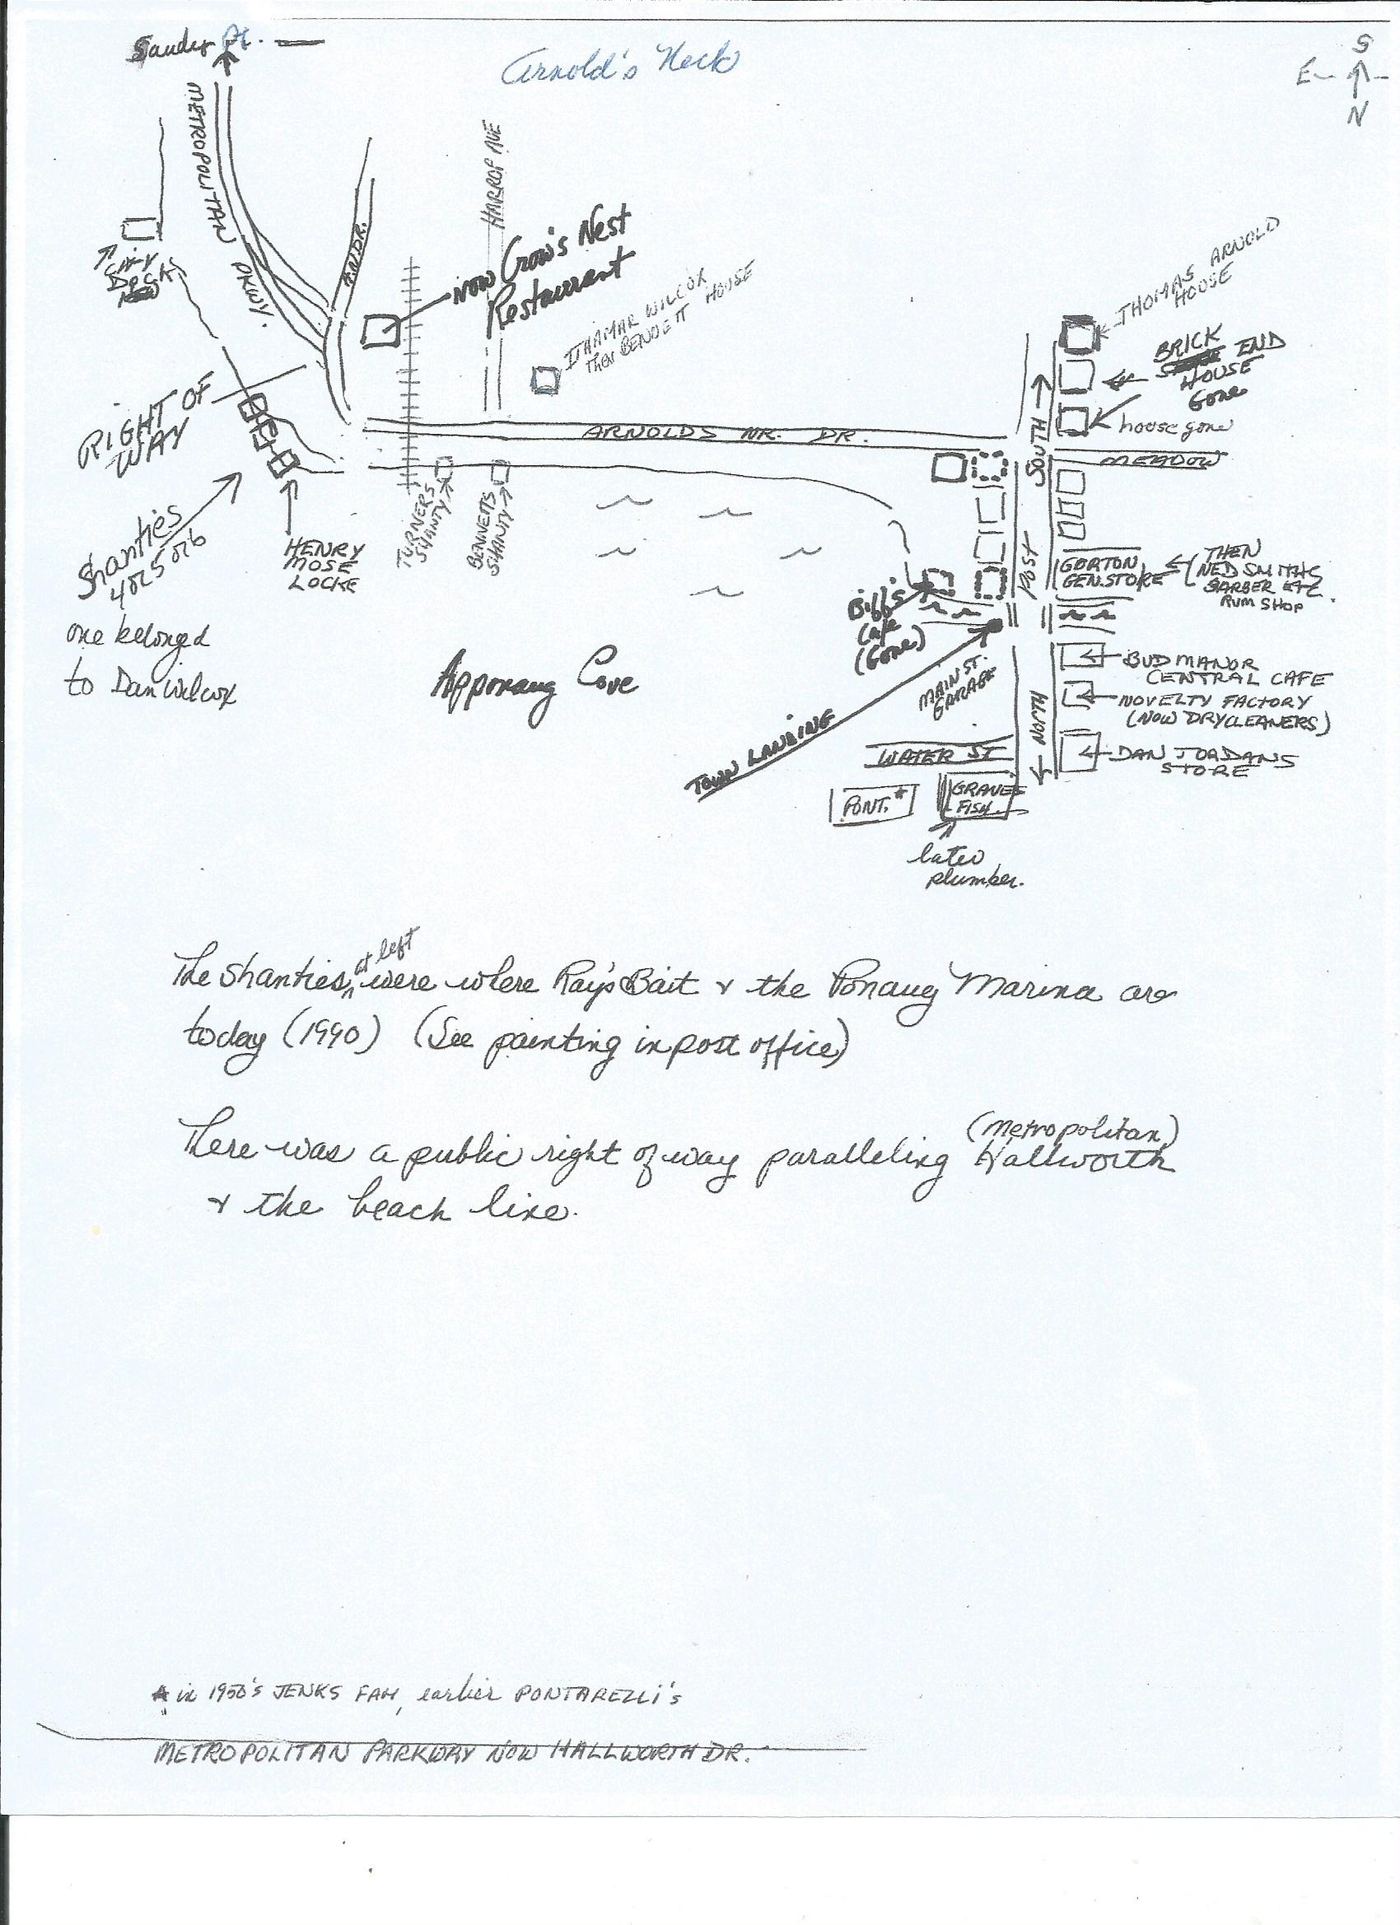 Sandy Pt.
Arnold's Neck
S
E
N
METROPOLITAN PKWY.
HARROP AVE
A.N.DR.
Now Crow's Nest
Restaurant
ITHAMAR WILCOX
THEN BENNETT HOUSE
THOMAS ARNOLD
HOUSE
BRICK END
HOUSE
Gone
house gone
Dock
RIGHT OF
WAY
ARNOLDS NK. DR.
SOUTH
MEADOW
Shanties
4 or 5 or 6
one belonged
to Dan Wilcox
HENRY
MOSE
LOCKE
TURNER'S
SHANTY
BENNETTS
SHANTY
POST
GORTON
GEN. STORE
THEN
NED SMITHS
BARBER ETC
RUM SHOP
Biff's
Cafe
(Gone)
Apponaug Cove
MAIN ST.
GARAGE
TOWN LANDING
BUD MANOR
CENTRAL CAFE
NOVELTY FACTORY
(NOW DRYCLEANERS)
NORTH
WATER ST
DAN JORDANS
STORE
PONT.*
GRAVES
FISH.
later
plumber.
The shanties at left were where Ray's Bait & the Ponaug Marina are
today (1990) (See painting in post office)
There was a public right of way paralleling (Metropolitan) Hallworth
& the beach line.
* in 1950's JENKS FAM, earlier PONTARELLI'S
METROPOLITAN PARKWAY NOW HALLWORTH DR.